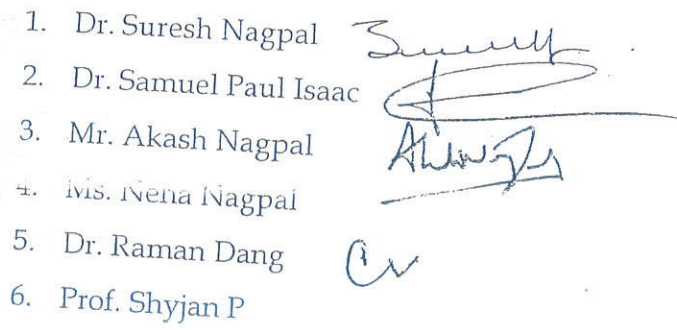 1. Dr. Suresh Nagpal
2. Dr. Samuel Paul Isaac
3. Mr. Akash Nagpal
4. Ms. Nena Nagpal
5. Dr. Raman Dang
6. Prof. Shyjan P